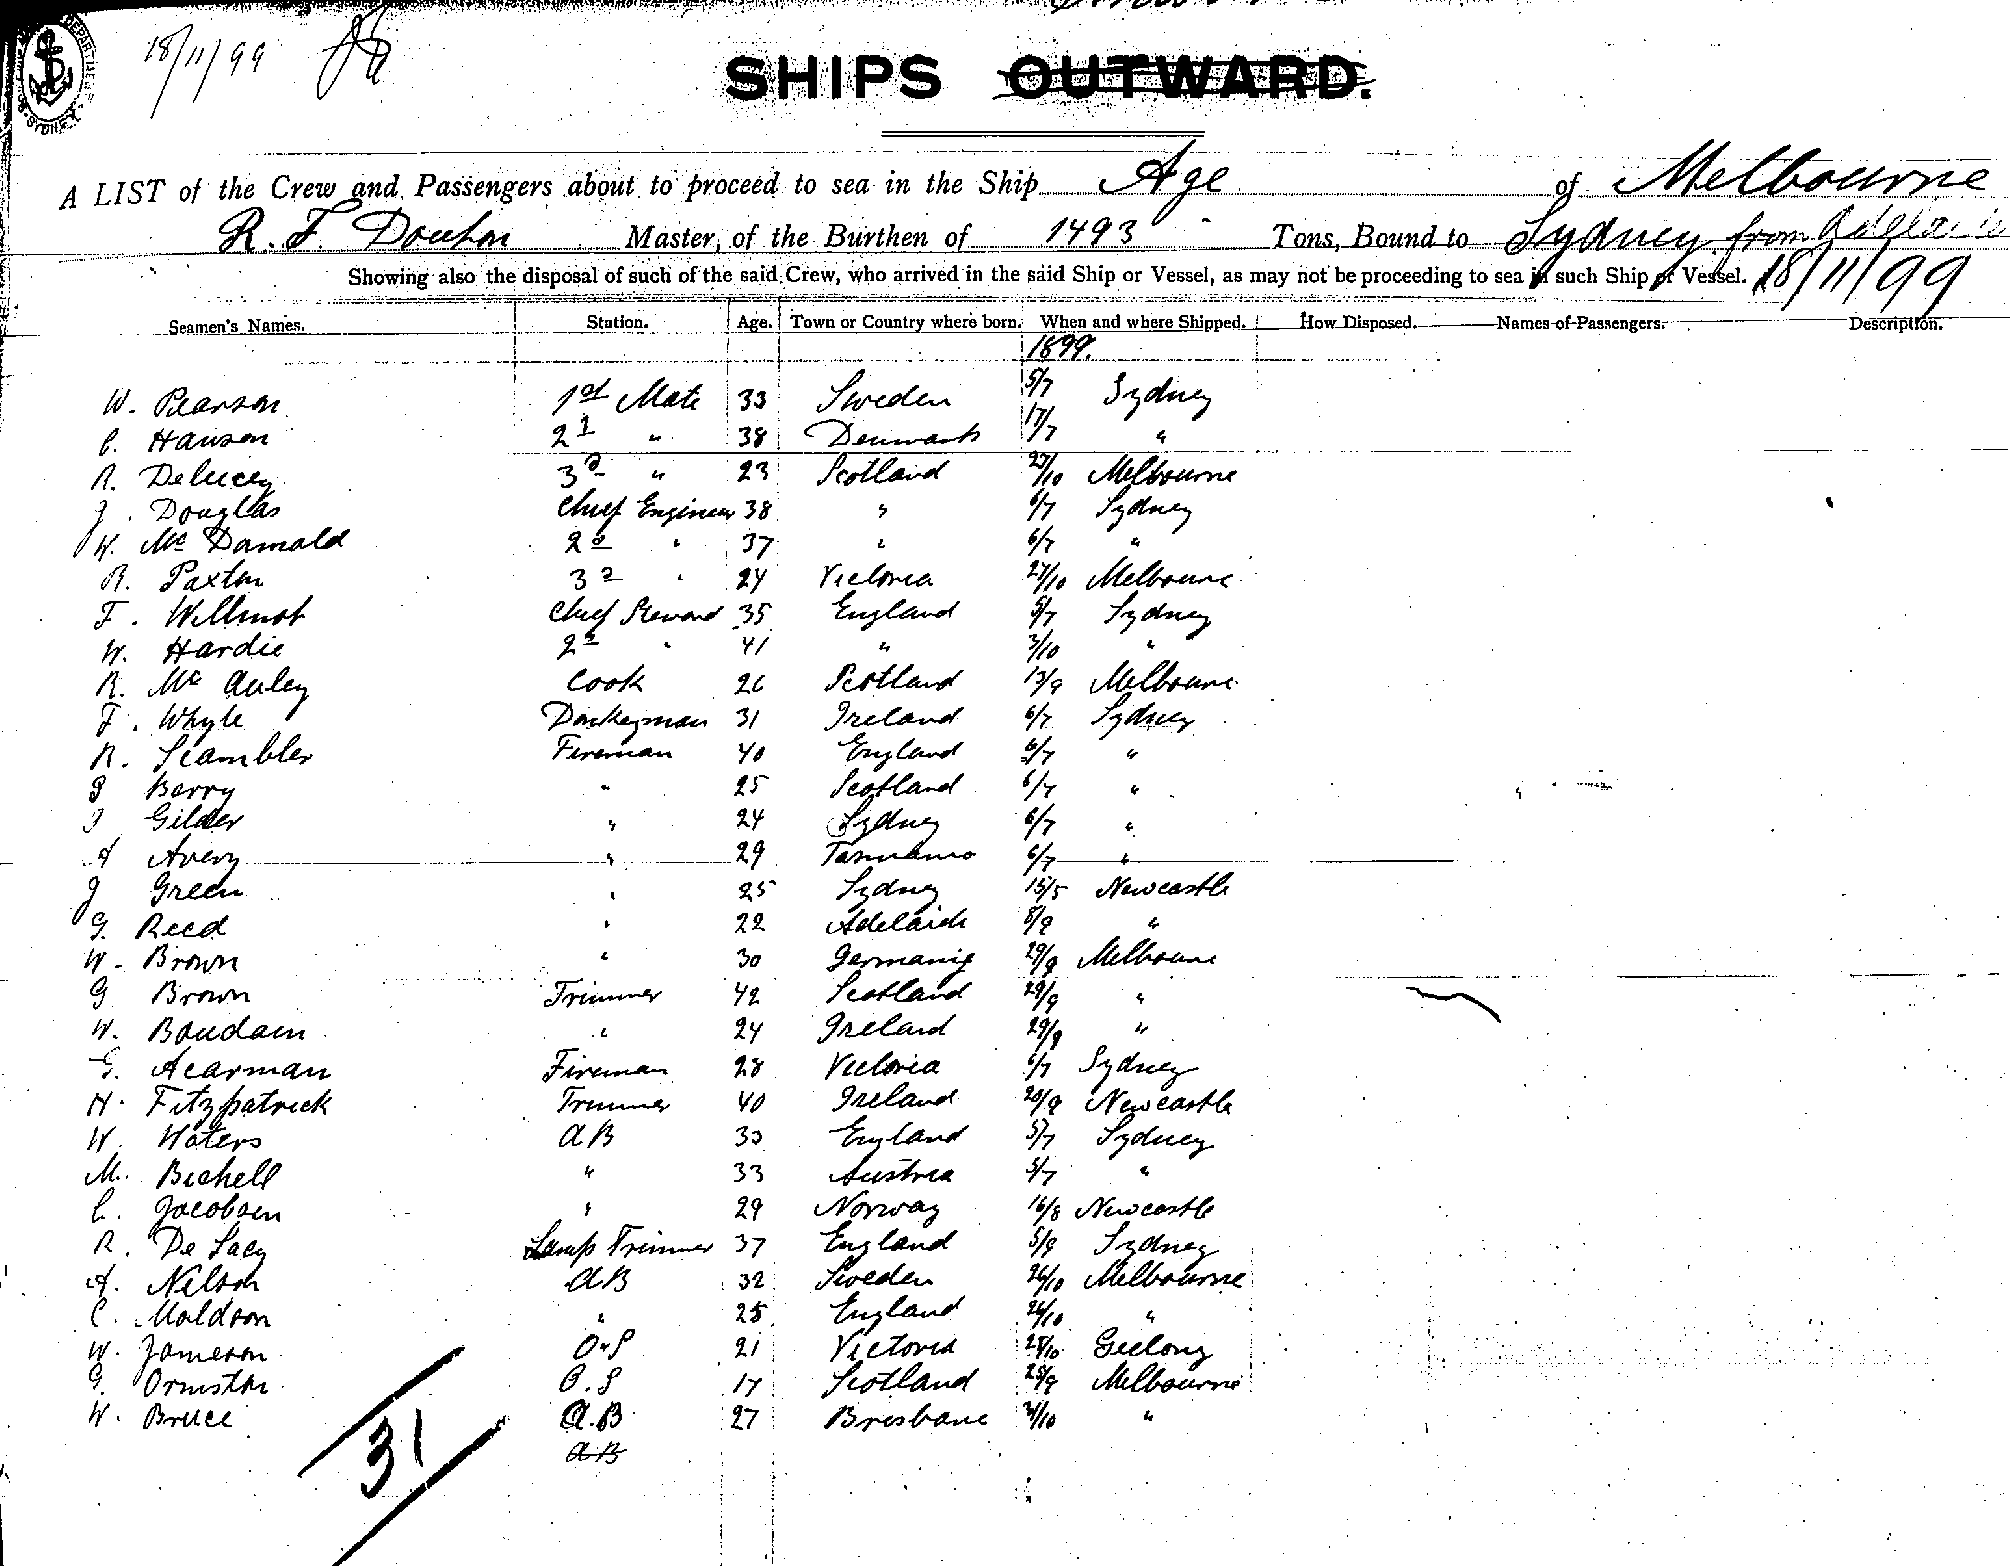 18/11/99
SHIPS OUTWARD.
A LIST of the Crew and Passengers about to proceed to sea in the Ship Age of Melbourne
R. F. Douton Master, of the Burthen of 1493 Tons, Bound to Sydney from Adelaide
Showing also the disposal of such of the said Crew, who arrived in the said Ship or Vessel, as may not be proceeding to sea in such Ship or Vessel. 18/11/99
Seamen's Names. Station. Age. Town or Country where born. When and where Shipped. How Disposed. Names of Passengers. Description.
1899.
W. Pearson 1st Mate 33 Sweden 5/7 Sydney
C. Hanson 2d " 38 Denmark 17/7 "
R. Delucey 3d " 23 Scotland 27/10 Melbourne
J. Douglas Chief Engineer 38 " 6/7 Sydney
W. Mc Damald 2d " 37 " 6/7 "
R. Paxton 3d " 24 Victoria 27/10 Melbourne
F. Willmot Chief Steward 35 England 5/7 Sydney
W. Hardie 2d " 41 " 3/10 "
R. Mc Auley Cook 26 Scotland 13/9 Melbourne
F. Whyte Donkeyman 31 Ireland 6/7 Sydney
R. Scambler Fireman 40 England 6/7 "
Berry " 25 Scotland 6/7 "
Gilder " 24 Sydney 6/7 "
A Avery " 29 Tasmania 6/7 "
J Green " 25 Sydney 15/5 Newcastle
G. Reed " 22 Adelaide 8/9 "
W. Brown " 30 Germany 29/9 Melbourne
G Brown Trimmer 42 Scotland 29/9 "
W. Boudain " 24 Ireland 29/9 "
G. Acarman Fireman 28 Victoria 6/7 Sydney
H. Fitzpatrick Trimmer 40 Ireland 20/9 Newcastle
W. Waters AB 33 England 5/7 Sydney
M. Bichell " 33 Austria 5/7 "
C. Jacobsen " 29 Norway 16/8 Newcastle
R. De Lacy Lamp Trimmer 37 England 5/9 Sydney
A. Nelson AB 32 Sweden 26/10 Melbourne
C. Maldoon " 25 England 26/10 "
W. Jameson O.S 21 Victoria 25/10 Geelong
G. Ormston O.S 17 Scotland 25/9 Melbourne
W. Bruce A.B 27 Brisbane "
AB
31